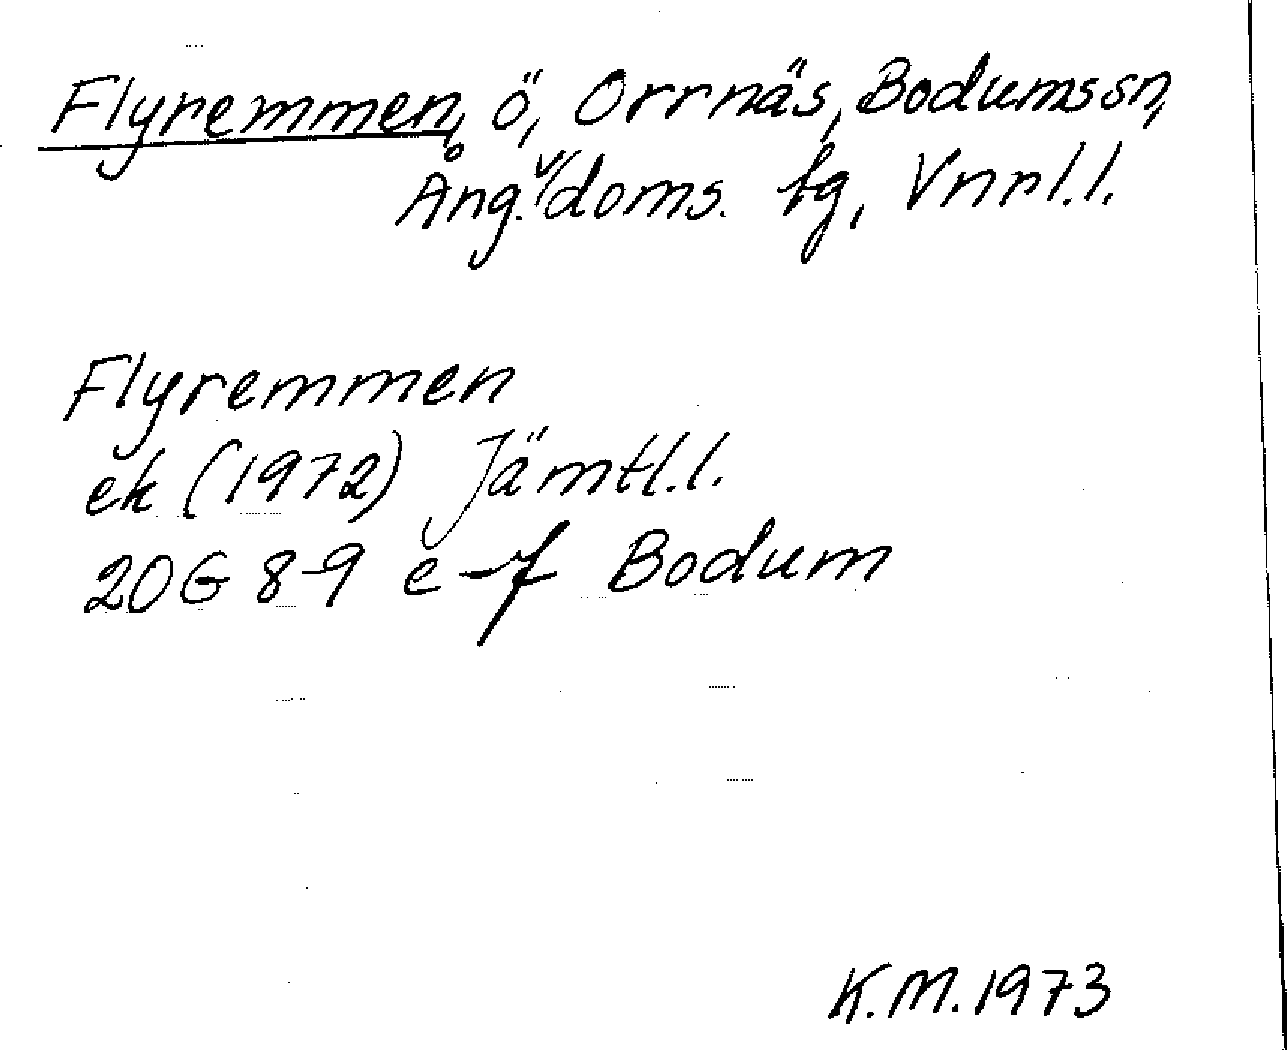 Flyremmen, ö, Orrnäs, Bodums sn,
Ång. v/doms. tg, Vnrl.l.
Flyremmen
ek (1972) Jämtl.l.
20G 8-9 e-f Bodum
K.M. 1973